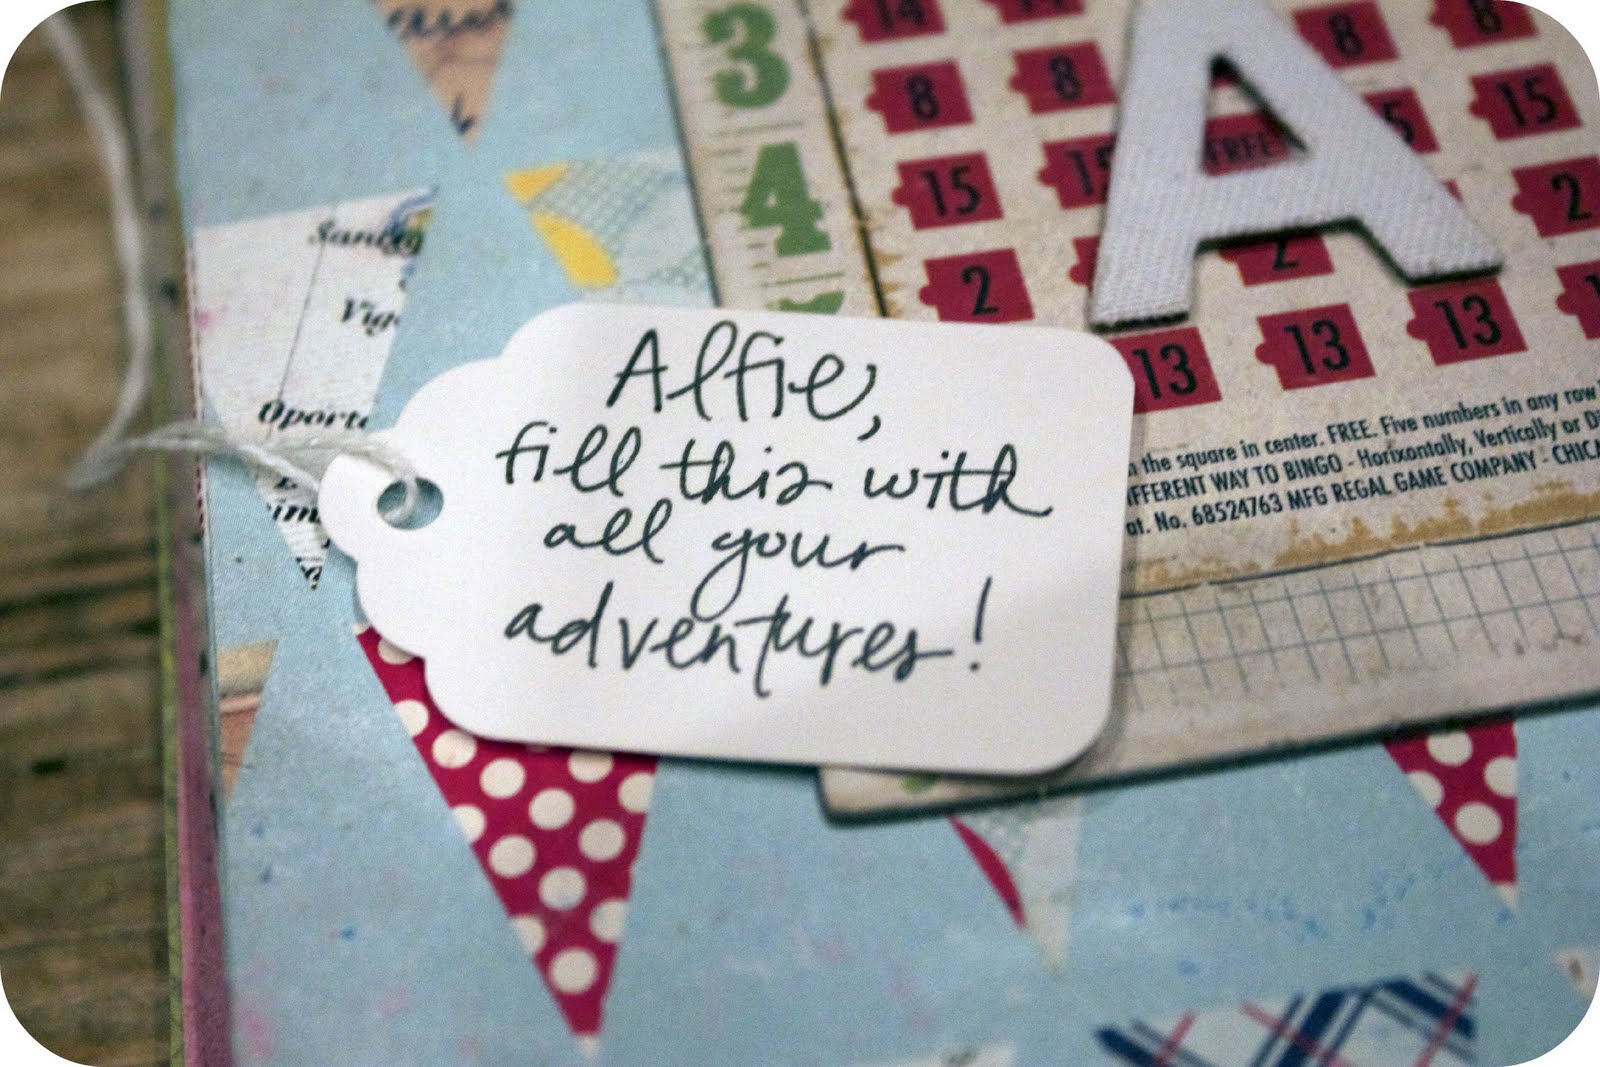 3
4
14
8
8
8
8
15
15
FREE
5
15
2
2
2
13
13
13
A
the square in center. FREE. Five numbers in any row
FFERENT WAY TO BINGO - Horixontally, Vertically or D
at. No. 68524763 MFG REGAL GAME COMPANY - CHICA
Vig
Oporto
Alfie,
fill this with
all your
adventures!